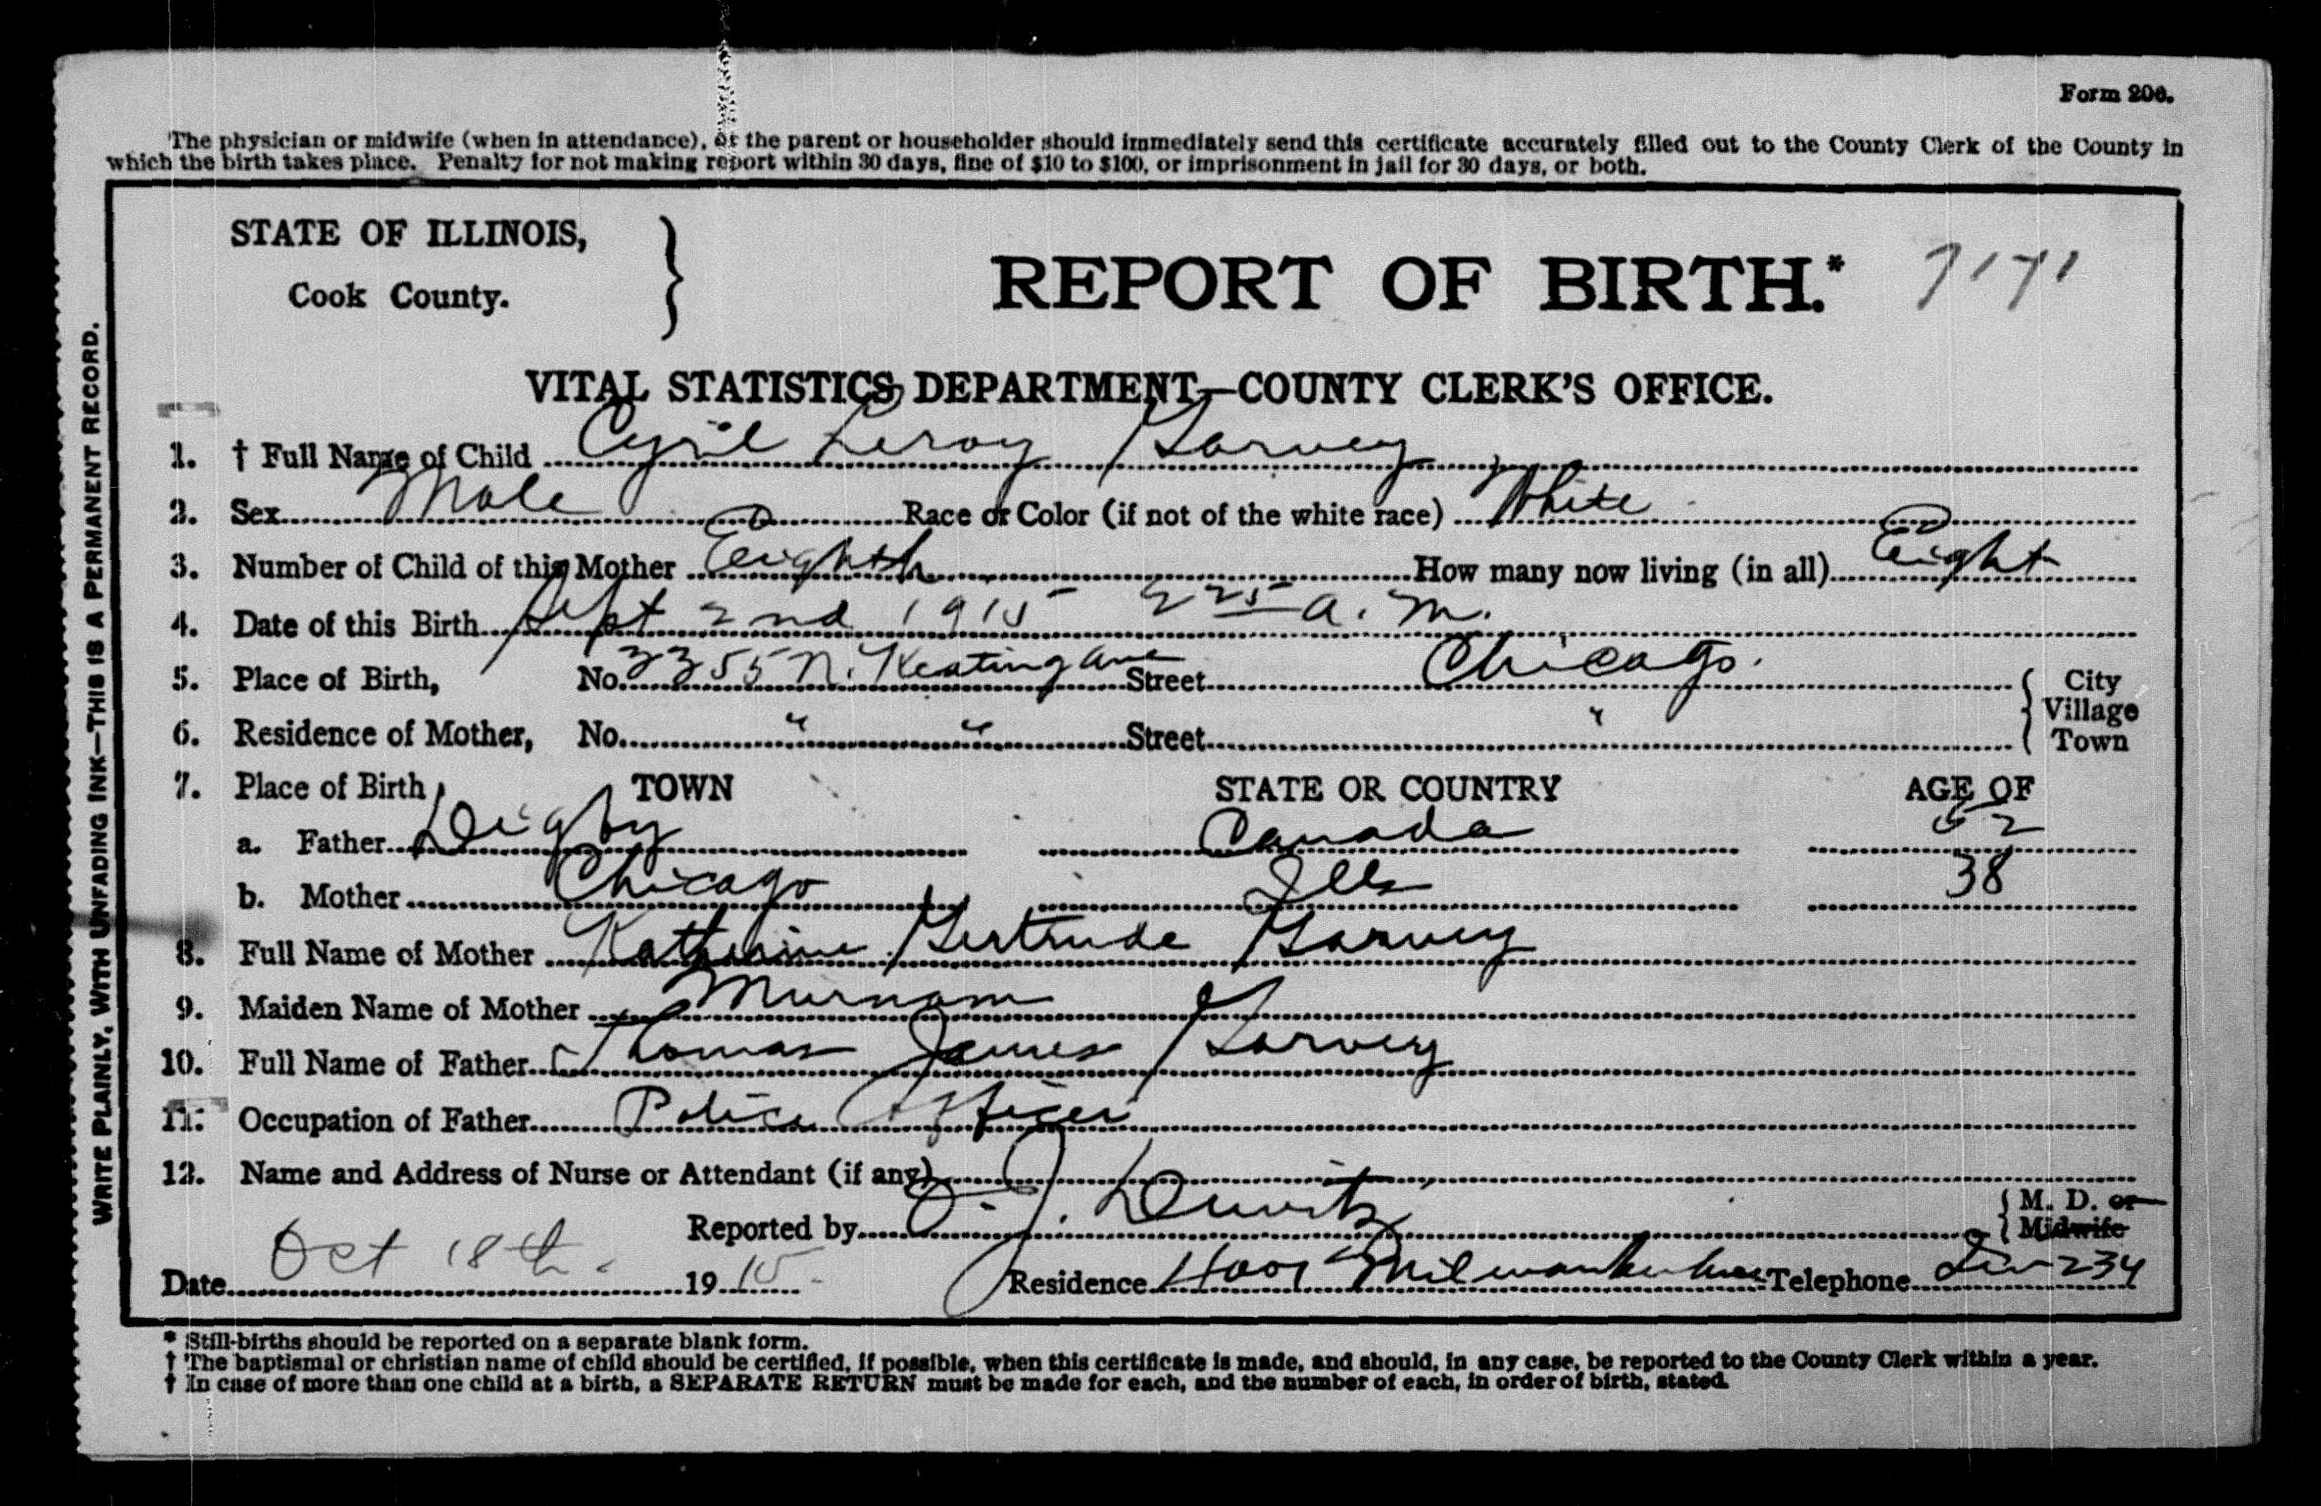 Form 206.
The physician or midwife (when in attendance), or the parent or householder should immediately send this certificate accurately filled out to the County Clerk of the County in
which the birth takes place. Penalty for not making report within 30 days, fine of $10 to $100, or imprisonment in jail for 30 days, or both.
WRITE PLAINLY, WITH UNFADING INK—THIS IS A PERMANENT RECORD.
STATE OF ILLINOIS,
Cook County.
REPORT OF BIRTH.* 7171
VITAL STATISTICS DEPARTMENT—COUNTY CLERK'S OFFICE.
1. † Full Name of Child Cyril Leroy Garvey
2. Sex Male Race or Color (if not of the white race) White
3. Number of Child of this Mother Eighth How many now living (in all) Eight
4. Date of this Birth Sept 2nd 1915 2 25 a. m.
5. Place of Birth, No. 3355 N. Keating ave Street Chicago. City
Village
6. Residence of Mother, No. " " Street " Town
7. Place of Birth TOWN STATE OR COUNTRY AGE OF
a. Father Digby Canada 52
b. Mother Chicago Ills 38
8. Full Name of Mother Katherine Gertrude Garvey
9. Maiden Name of Mother Murnam
10. Full Name of Father Thomas James Garvey
11. Occupation of Father Police Officer
12. Name and Address of Nurse or Attendant (if any)
Reported by O. J. M. D. or
Midwife
Date Oct 18th 1915 Residence 4001 Milwaukee Ave Telephone 234
* Still-births should be reported on a separate blank form.
† The baptismal or christian name of child should be certified, if possible, when this certificate is made, and should, in any case, be reported to the County Clerk within a year.
† In case of more than one child at a birth, a SEPARATE RETURN must be made for each, and the number of each, in order of birth, stated.